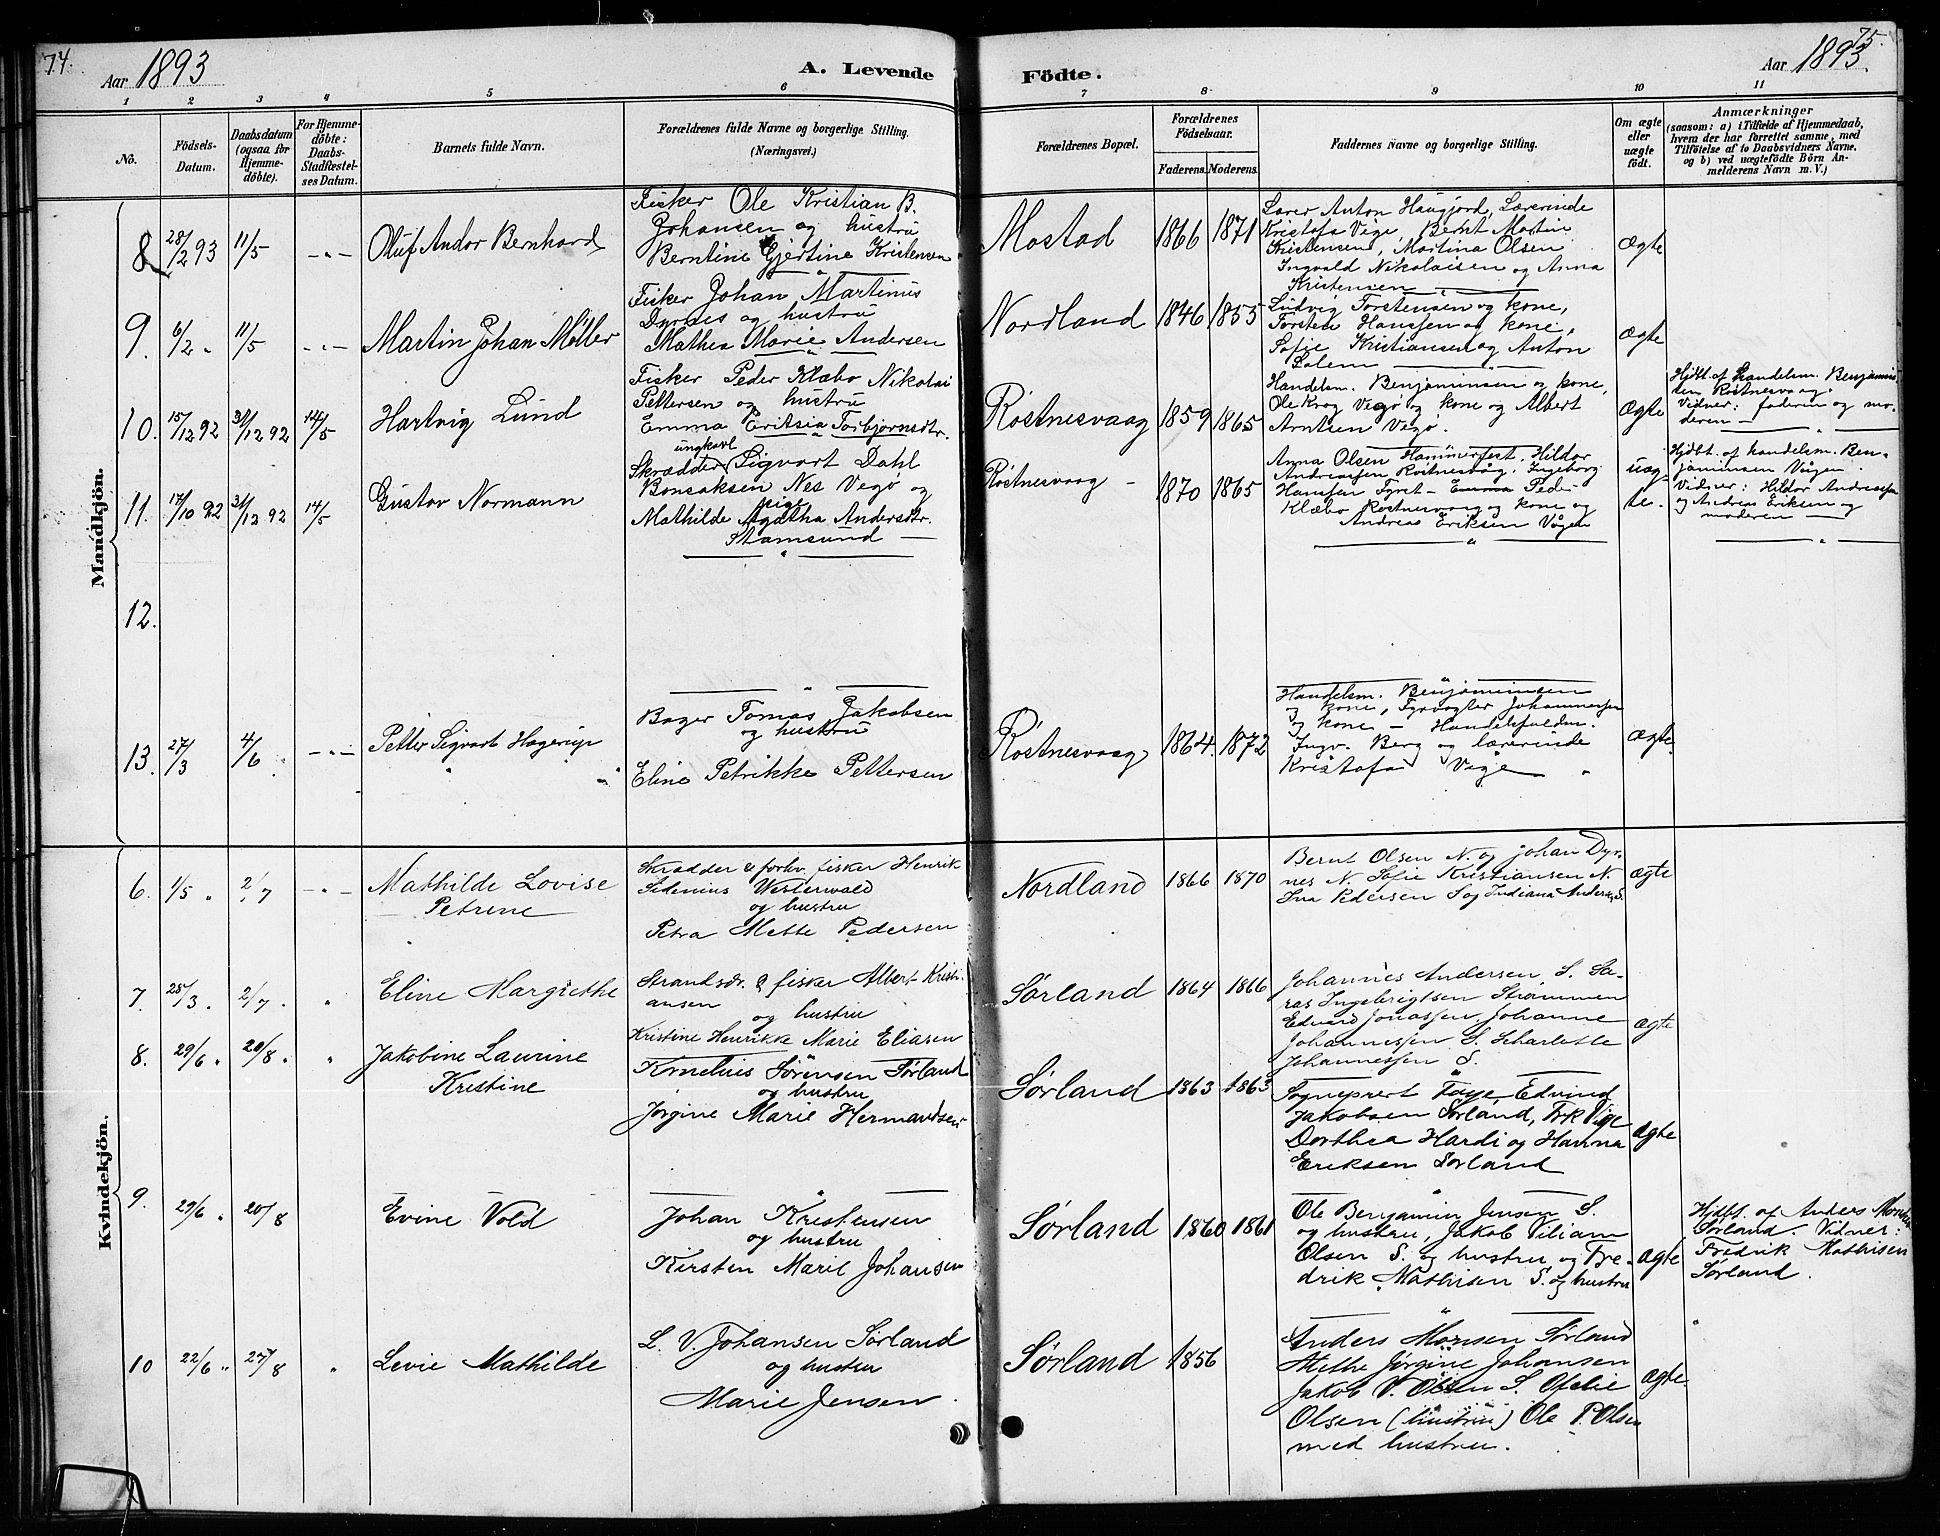 74.
Aar 1893
A. Levende
Födte.
75.
Aar 1893.
1 2 3 4 5 6 7 8 9 10 11
No.
Födsels-
Datum.
Daabsdatum
(ogsaa for
Hjemme-
döbte).
For Hjemme-
döbte:
Daabs-
Stadfæstel-
ses Datum.
Barnets fulde Navn.
Forældrenes fulde Navne og borgerlige Stilling.
(Næringsvei.)
Forældrenes Bopæl.
Forældrenes
Födselsaar.
Faderens. Moderens.
Faddernes Navne og borgerlige Stilling.
Om ægte
eller
uægte
födt.
Anmærkninger
(saasom: a) i Tilfælde af Hjemmedaab,
hvem der har forrettet samme, med
Tilföielse af to Daabsvidners Navne,
og b) ved uægtefödte Börn An-
melderens Navn m. V.)
Mandkjön.
8 28/2 93 11/5 -"- Oluf Andor Bernhard
Fisker Ole Kristian B.
Johansen og hustru
Berntine Gjertine Kristensen
Mostad 1866 1871
Lærer Anton Haugjord, Lærerinde
Kristofa Vige, Bernt Martin
Kristensen, Martina Olsen
Ingvald Nikolaisen og Anna
Kristensen
Ægte
9. 6/2 " 11/5 -"- Martin Johan Møller
Fisker Johan Martinus
Dyrnes og hustru
Mathea Marie Andersen
Nordland 1846 1855
Ludvig Torstensen og kone,
Torsten Hanssen og kone,
Sofie Kristiansen og Anton
Ægte
10. 15/12 92 31/12 92 14/5 Hartvig Lund
Fisker Peder Klæbo Nikolai
Pettersen og hustru
Emma Eritsea Torbjørnsdtr.
Røstnesvaag 1859 1865
Handelsm. Benjaminsen og kone,
Ole Krog Vegø og kone og Albert
Arntsen Vegø.
Ægte
Hjdbt. af handelsm. Benjamin-
sen Røstnesvaag.
Vidner: faderen og mo-
deren
11. 17/10 92 31/12 92 14/5 Gustav Normann
ungkarl
Skrædder Sigvart Dahl
Bonsaksen Nes Vegø og
pige
Mathilde Agatha Andersdtr.
Stamsund
Røstnesvaag - 1870 1865
Anna Olsen Hammerfest, Hildor
Andreassen Røstnesvåg, Ingeborg
Hanssen Fyret - Emma Peder
Klæbo Røstnesvaag og kone og
Andreas Eriksen Vågen
uæg-
te.
Hjdbt. af handelsm. Ben-
jaminsen Vågen.
Vidner: Hildor Andreassen
og Andreas Eriksen og
moderen
12.
13. 27/3 4/6 -"- Petter Sigvart Hagerup
Bager Tomas Jakobsen
og hustru
Eline Petrikke Pettersen
Røstnesvaag 1864. 1872
Handelsm. Benjaminsen
og kone, Fyrvogter Johannessen
og kone - Handelsfuldm.
Ingv. Berg og lærerinde
Kristofa Vige
Ægte
Kvindekjön.
6. 1/5 " 2/7 -"- Mathilde Lovise
Petrine
Skrædder & forhv. fisker Henrik
Sedenius Westerwald
og hustru
Petra Mette Pedersen
Nordland 1866 1870
Bernt Olsen N. og Johan Dyr-
nes N. Sofie Kristiansen N.
Ina Pedersen S og Indiana Anders. S.
ægte
7. 28/3. 2/7. " Eline Margrethe
Strandsdr. & fisker Albert Kristi-
ansen
og hustru
Kristine Henrikke Marie Eliasen
Sørland 1864 1866
Johannes Andersen S. Sa-
ras Ingebrigtsen Strømmen
Edvard Jonassen, Johanne
Johannessen S. Scharlotte
Johannessen S.
ægte
8. 29/6. 20/8. " Jakobine Laurine
Kristine
Kornelius Sörensen Sørland
og hustru
Jørgine Marie Hermandsen
Sørland 1863 1863
Sogneprest Foye, Edvind
Jakobsen Sørland, Frk Vige
Dorthea Hardi og Hanna
Eriksen Sørland
ægte
9. 29/6 " 20/8 Evine Vold
Johan Kristensen
og hustru
Kirsten Marie Johansen
Sørland 1860 1861
Ole Benjamin Jensen S.
og hustru, Jakob Viliam
Olsen S. og hustru og Fre-
drik Mathisen S. og hustru
ægte
Hjdbt. af Anders
Sørland. Vidner:
Fredrik Mathisen
Sørland.
10 22/6 " 27/8 " Levie Mathilde
L. V. Johansen Sørland
og hustru
Marie Jensen
Sørland 1856
Anders Monsen Sørland
Methe Jørgine Johansen
Jakob V. Olsen S. Ofelie
Olsen (hustru) Ole P. Olsen
med hustru.
ægte.